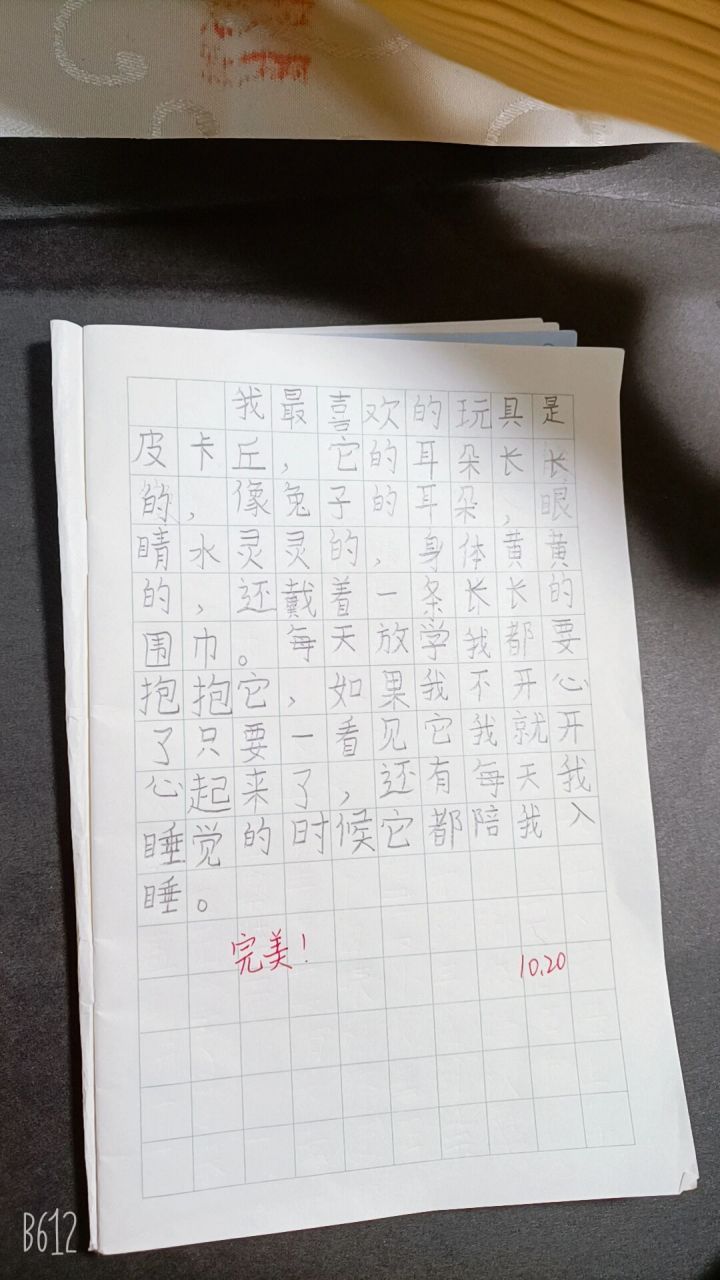 我最喜欢的玩具是
皮卡丘，它的耳朵长长
的，像兔子的耳朵，眼
睛水灵灵的，身体黄黄
的，还戴着一条长长的
围巾。每天放学我都要
抱抱它，如果我不开心
了只要一看见它我就开
心起来了，还有每天我
睡觉的时候它都陪我入
睡。
完美！
10.20
B612